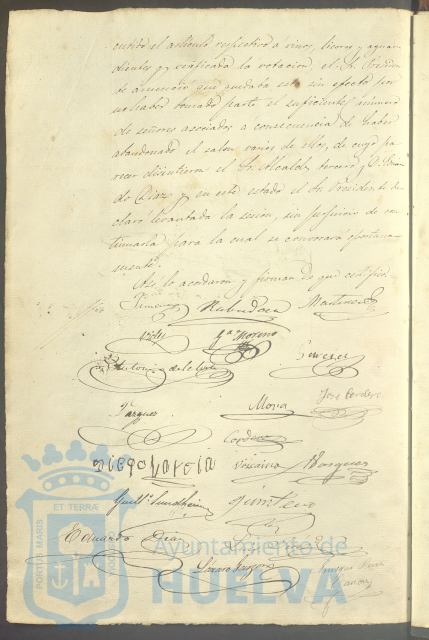 cutido el artículo respectivo á vinos, licores y aguar-
dientes y verificada la votacion el Sr. Presidente
anunció que quedaba esta sin efecto por
no haber tomado parte el suficiente número
de señores asociados a consecuencia de haber
abandonado el salon varios de ellos, de cuyo pa-
recer disintieron el Sr. Alcalde tercero y D.
Diaz, y en este estado el Sr. Presidente de-
claró levantada la sesion, sin perjuicio de con-
tinuarla para la cual se convocará oportuna-
mente.
Asi lo acordaron y firman de que certifico.
Martinez
Gª Moreno
Antonio de la Corte
Vazquez Mora José Cordero
Cordero
DIEGO GARCIA Vizcaino Vazquez
Guill. Sundheim Quintero
Eduardo Diaz
Lázaro
PORTUS MARIS ET TERRAE CUSTODIA
Ayuntamiento de
HUELVA